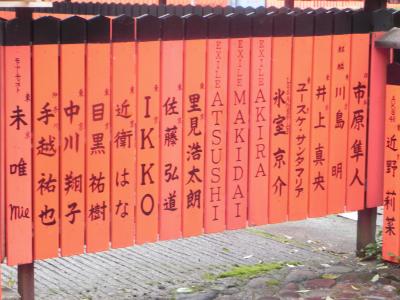 市原隼人
川島明
井上真央
ユースケ・サンタマリア
氷室京介
EXILE AKIRA
EXILE MAKIDAI
EXILE ATSUSHI
里見浩太朗
佐藤弘道
IKKO
近衛はな
目黒祐樹
中川翔子
手越祐也
未唯mie
近野莉菜